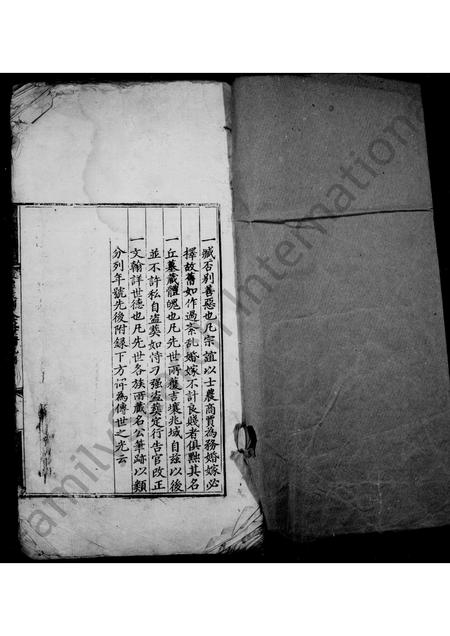 一臧否别善惡也凡宗誼以士農商賈為務婚嫁必
擇故舊如作過紊乱婚嫁不計良賤者俱黜其名
一丘墓藏體魄也凡先世所獲吉壤兆域自兹以後
並不許私自盗葵如恃刁强盗葵定行告官改正
一文翰詳世德也凡先世各族所藏名公筆跡以類
分列年號先後附录下方以為傳世之光云
FamilySearch International